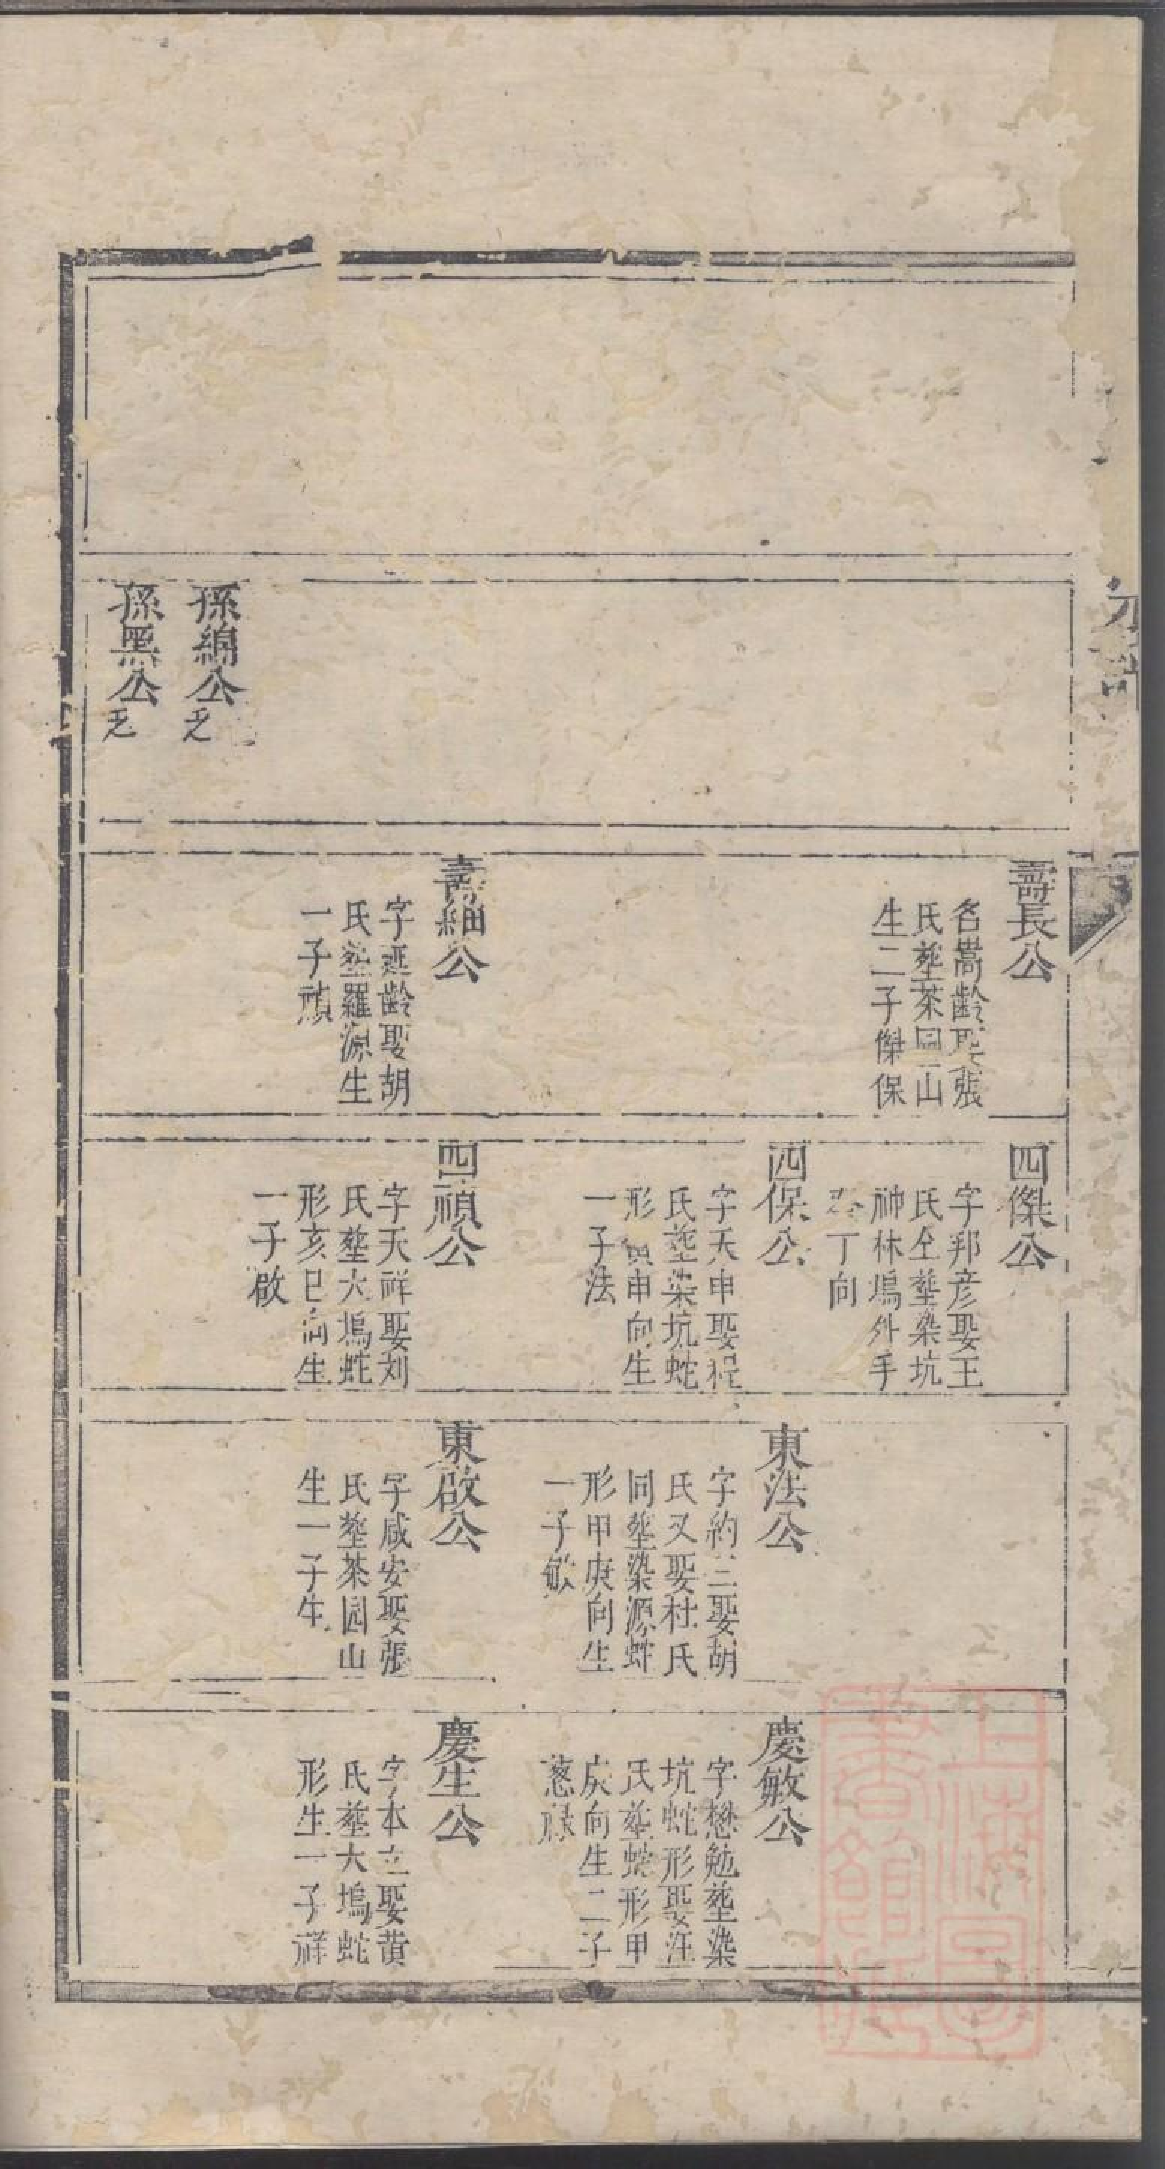 孫綿公乏
孫黑公乏
壽長公
名嵩齡娶張
氏塟茶园山
生二子傑保
壽細公
字延齡娶胡
氏塟羅源生
一子禎
四傑公
字邦彦娶王
氏仝塟染坑
神林塢外手
癸丁向
四保公
字天申娶程
氏塟染坑蛇
形寅申向生
一子法
四禎公
字天祥娶刘
氏塟大塢蛇
形亥巳向生
一子啟
東法公
字約三娶胡
氏又娶杜氏
同塟染源蛇
形甲庚向生
一子敏
東啟公
字咸安娶張
氏塟茶园山
生一子生
慶敏公
字懋勉塟染
坑蛇形娶汪
氏塟蛇形甲
庚向生二子
蔥祿
慶生公
字本立娶黄
氏塟大塢蛇
形生一子祥
上海圖
書館藏